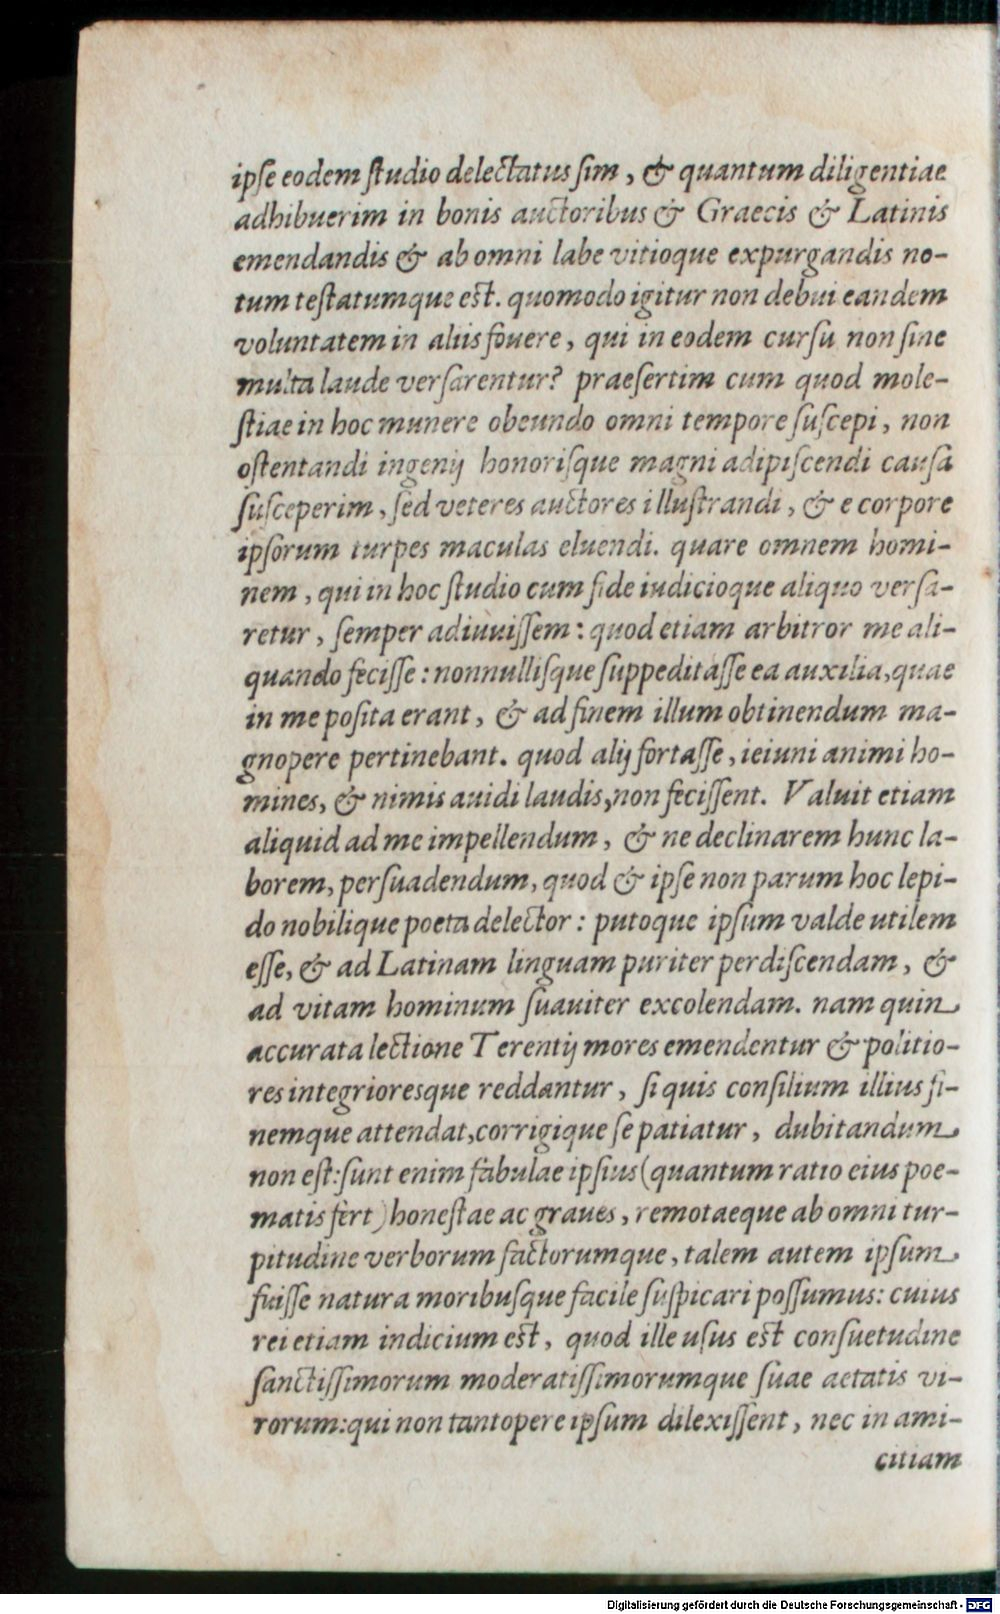 ipse eodem studio delectatus sim, & quantum diligentiae
adhibuerim in bonis auctoribus & Graecis & Latinis
emendandis & ab omni labe vitioque expurgandis no-
tum testatumque est. quomodo igitur non debui eandem
voluntatem in aliis fouere, qui in eodem cursu non sine
multa laude versarentur? praesertim cum quod mole-
stiae in hoc munere obeundo omni tempore suscepi, non
ostentandi ingenij honorisque magni adipiscendi causa
susceperim, sed veteres auctores illustrandi, & e corpore
ipsorum turpes maculas eluendi. quare omnem homi-
nem, qui in hoc studio cum fide iudicioque aliquo versa-
retur, semper adiuuissem: quod etiam arbitror me ali-
quando fecisse: nonnullisque suppeditasse ea auxilia, quae
in me posita erant, & ad finem illum obtinendum ma-
gnopere pertinebant. quod alij fortasse, ieiuni animi ho-
mines, & nimis auidi laudis, non fecissent. Valuit etiam
aliquid ad me impellendum, & ne declinarem hunc la-
borem, persuadendum, quod & ipse non parum hoc lepi-
do nobilique poeta delector: putoque ipsum valde utilem
esse, & ad Latinam linguam puriter perdiscendam, &
ad vitam hominum suauiter excolendam. nam quin
accurata lectione Terentij mores emendentur & politio-
res integrioresque reddantur, si quis consilium illius fi-
nemque attendat, corrigique se patiatur, dubitandum
non est: sunt enim fabulae ipsius (quantum ratio eius poe-
matis fert) honestae ac graues, remotaeque ab omni tur-
pitudine verborum factorumque, talem autem ipsum
fuisse natura moribusque facile suspicari possumus: cuius
rei etiam indicium est, quod ille usus est consuetudine
sanctissimorum moderatissimorumque suae aetatis vi-
rorum: qui non tantopere ipsum dilexissent, nec in ami-
citiam
Digitalisierung gefördert durch die Deutsche Forschungsgemeinschaft - DFG